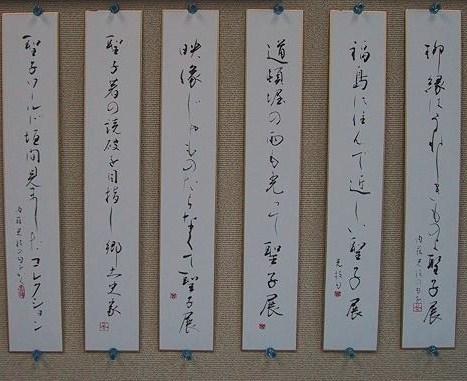 縁はうれしきもの聖子展
福島に住んで近しい聖子展
道頓堀の雨も光って聖子展
映像じゃものたらなくて聖子展
聖子著の読破を目指し郷土史家
聖子ワールド垣間見ましたコレクション